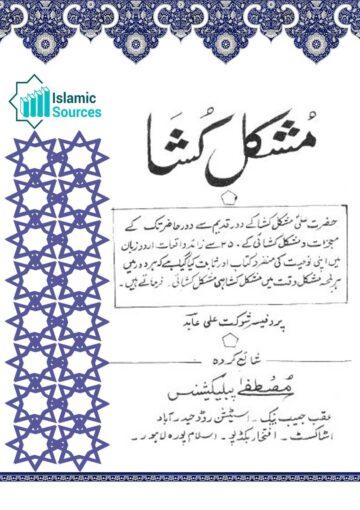 Islamic
Sources
مُشکل کُشَا
حضرت علیؑ مشکل کشا کے دور قدیم سے دور حاضر تک کے
معجزات و مشکل کشائی کے ۲۵۰ سے زائد واقعات اردو زبان
میں اپنی نوعیت کی منفرد کتاب اور ثابت کیا گیا ہے کہ ہر دور میں
ہر لمحہ مشکل وقت میں مشکل کشا ہی مشکل کشائی فرماتے ہیں۔
پروفیسر شوکت علی عابد
شائع کردہ
مصطفےٰ پبلیکیشنس
عقب حبیب بینک۔ اسٹیشن روڈ حیدرآباد
اسٹاکسٹ۔ افتخار بکڈپو۔ اسلام پورہ لاہور۔